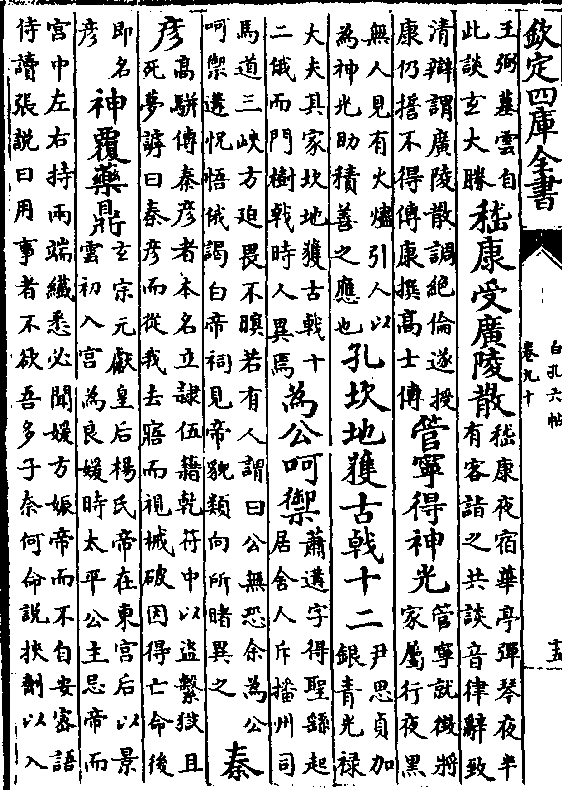 欽定四庫全書
白孔六帖
卷九十
十五
王弼墓雲自
此談玄大勝
嵇康受廣陵散
嵇康夜宿華亭彈琴夜半
有客詣之共談音律辭致
清辯謂廣陵散調絕倫遂授
康仍誓不得傳康撰高士傳
管寧得神光
管寧就徵將
家屬行夜黑
無人見有火爐引人以
為神光助積善之應也
孔坎地獲古戟十二
尹思貞加
銀青光祿
大夫其家坎地獲古戟十
二俄而門樹戟時人異焉
為公呵禦
蕭遘字得聖繇起
居舍人斥播州司
馬道三峽方迫畏不瞑若有人謂曰公無恐余為公
呵禦遘恍悟俄謁白帝祠見帝貌類向所睹異之
秦
彦
高駢傳秦彦者本名立隸伍籍乾符中以盜繫獄且
死夢謼曰秦彦而從我去寤而視械破因得亡命後
即名
彦
神覆藥鼎
玄宗元獻皇后楊氏帝在東宮后以景
雲初入宮為良媛時太平公主忌帝而
宮中左右持兩端纖悉必聞媛方娠帝而不自安密語
侍讀張說曰用事者不欲吾多子奈何命說挾劑以入